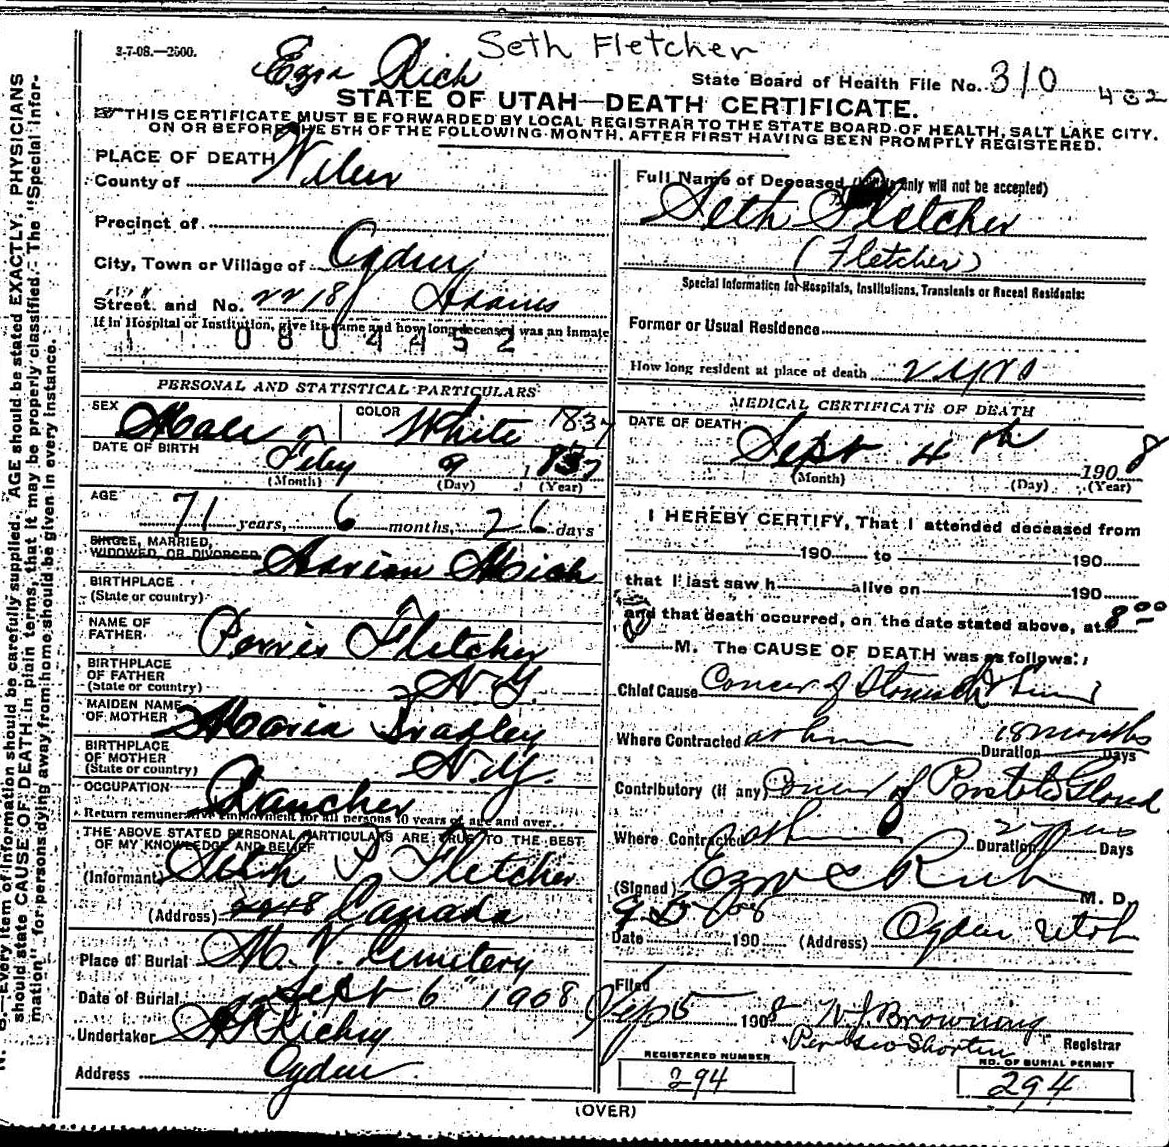 Seth Fletcher
3-7-08.—2500.
Ezra Rich
State Board of Health File No. 310 432
STATE OF UTAH—DEATH CERTIFICATE.
THIS CERTIFICATE MUST BE FORWARDED BY LOCAL REGISTRAR TO THE STATE BOARD OF HEALTH, SALT LAKE CITY.
ON OR BEFORE THE 5TH OF THE FOLLOWING MONTH, AFTER FIRST HAVING BEEN PROMPTLY REGISTERED.
PLACE OF DEATH
County of
Precinct of
City, Town or Village of Ogden
Street and No. 2218 Adams
If in Hospital or Institution, give its name and how long deceased was an inmate
0804452
PERSONAL AND STATISTICAL PARTICULARS
SEX Male COLOR White 1837
DATE OF BIRTH Feby 9, 1837
(Month) (Day) (Year)
AGE
71 years, 6 months, 26 days
SINGLE, MARRIED,
WIDOWED, OR DIVORCED
BIRTHPLACE
(State or country)
NAME OF
FATHER Fletcher
BIRTHPLACE
OF FATHER
(State or country) N.Y.
MAIDEN NAME
OF MOTHER Maria Bradley
BIRTHPLACE
OF MOTHER
(State or country) N.Y.
OCCUPATION Rancher
Return remunerative employment for all persons 10 years of age and over.
THE ABOVE STATED PERSONAL PARTICULARS ARE TRUE TO THE BEST
OF MY KNOWLEDGE AND BELIEF
(Informant) Seth Fletcher
(Address) Canada
Place of Burial M. V. Cemetery
Date of Burial Sept 6" 1908
Undertaker
Address Ogden
Full Name of Deceased only will not be accepted)
Seth Fletcher
(Fletcher)
Special Information for Hospitals, Institutions, Transients or Recent Residents:
Former or Usual Residence
How long resident at place of death 2 yrs
MEDICAL CERTIFICATE OF DEATH
DATE OF DEATH
Sept 4th 1908
(Month) (Day) (Year)
I HEREBY CERTIFY, That I attended deceased from
190 to 190
that I last saw h alive on 190
and that death occurred, on the date stated above, at 8 00
M. The CAUSE OF DEATH was as follows:
Chief Cause Cancer of Stomach &
Where Contracted at home Duration 18 months Days
Contributory (if any) Cancer of Prostate Gland
Where Contracted at home Duration 2 years Days
(Signed) Ezra C Rich M. D.
9-5-08
Date 190 (Address) Ogden Utah
Filed
Sep 5 1908 W J Browning
Per Geo Shorten Registrar
REGISTERED NUMBER
294
NO. OF BURIAL PERMIT
294
(OVER)
N. B.—Every item of information should be carefully supplied. AGE should be stated EXACTLY. PHYSICIANS
should state CAUSE OF DEATH in plain terms, that it may be properly classified. The "Special Infor-
mation" for persons dying away from home should be given in every instance.